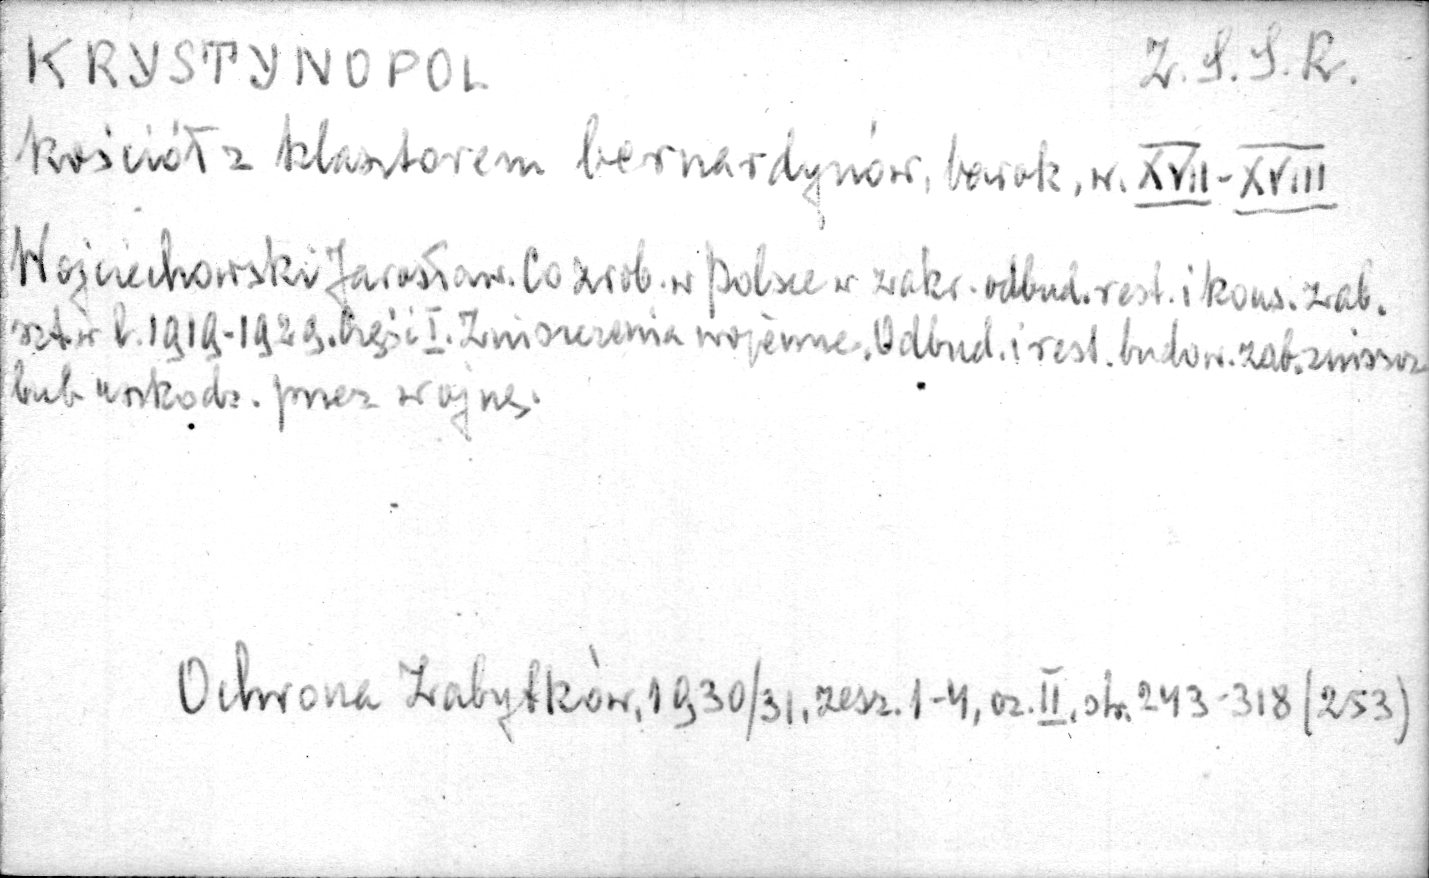 KRYSTYNOPOL Z.S.S.R.
kościół z klasztorem bernardynów, barok, w. XVII-XVIII
Wojciechowski Jarosław. Co zrob. w Polsce w zakr. odbud. rest. i kons. zab.
szt. w l. 1919-1929. Część I. Zniszczenia wojenne. Odbud. i rest. budow. zab. zniszcz
lub uszkodz. przez wojnę.
Ochrona Zabytków, 1930/31, zesz. 1-4, cz. II, str. 243-318 (253)